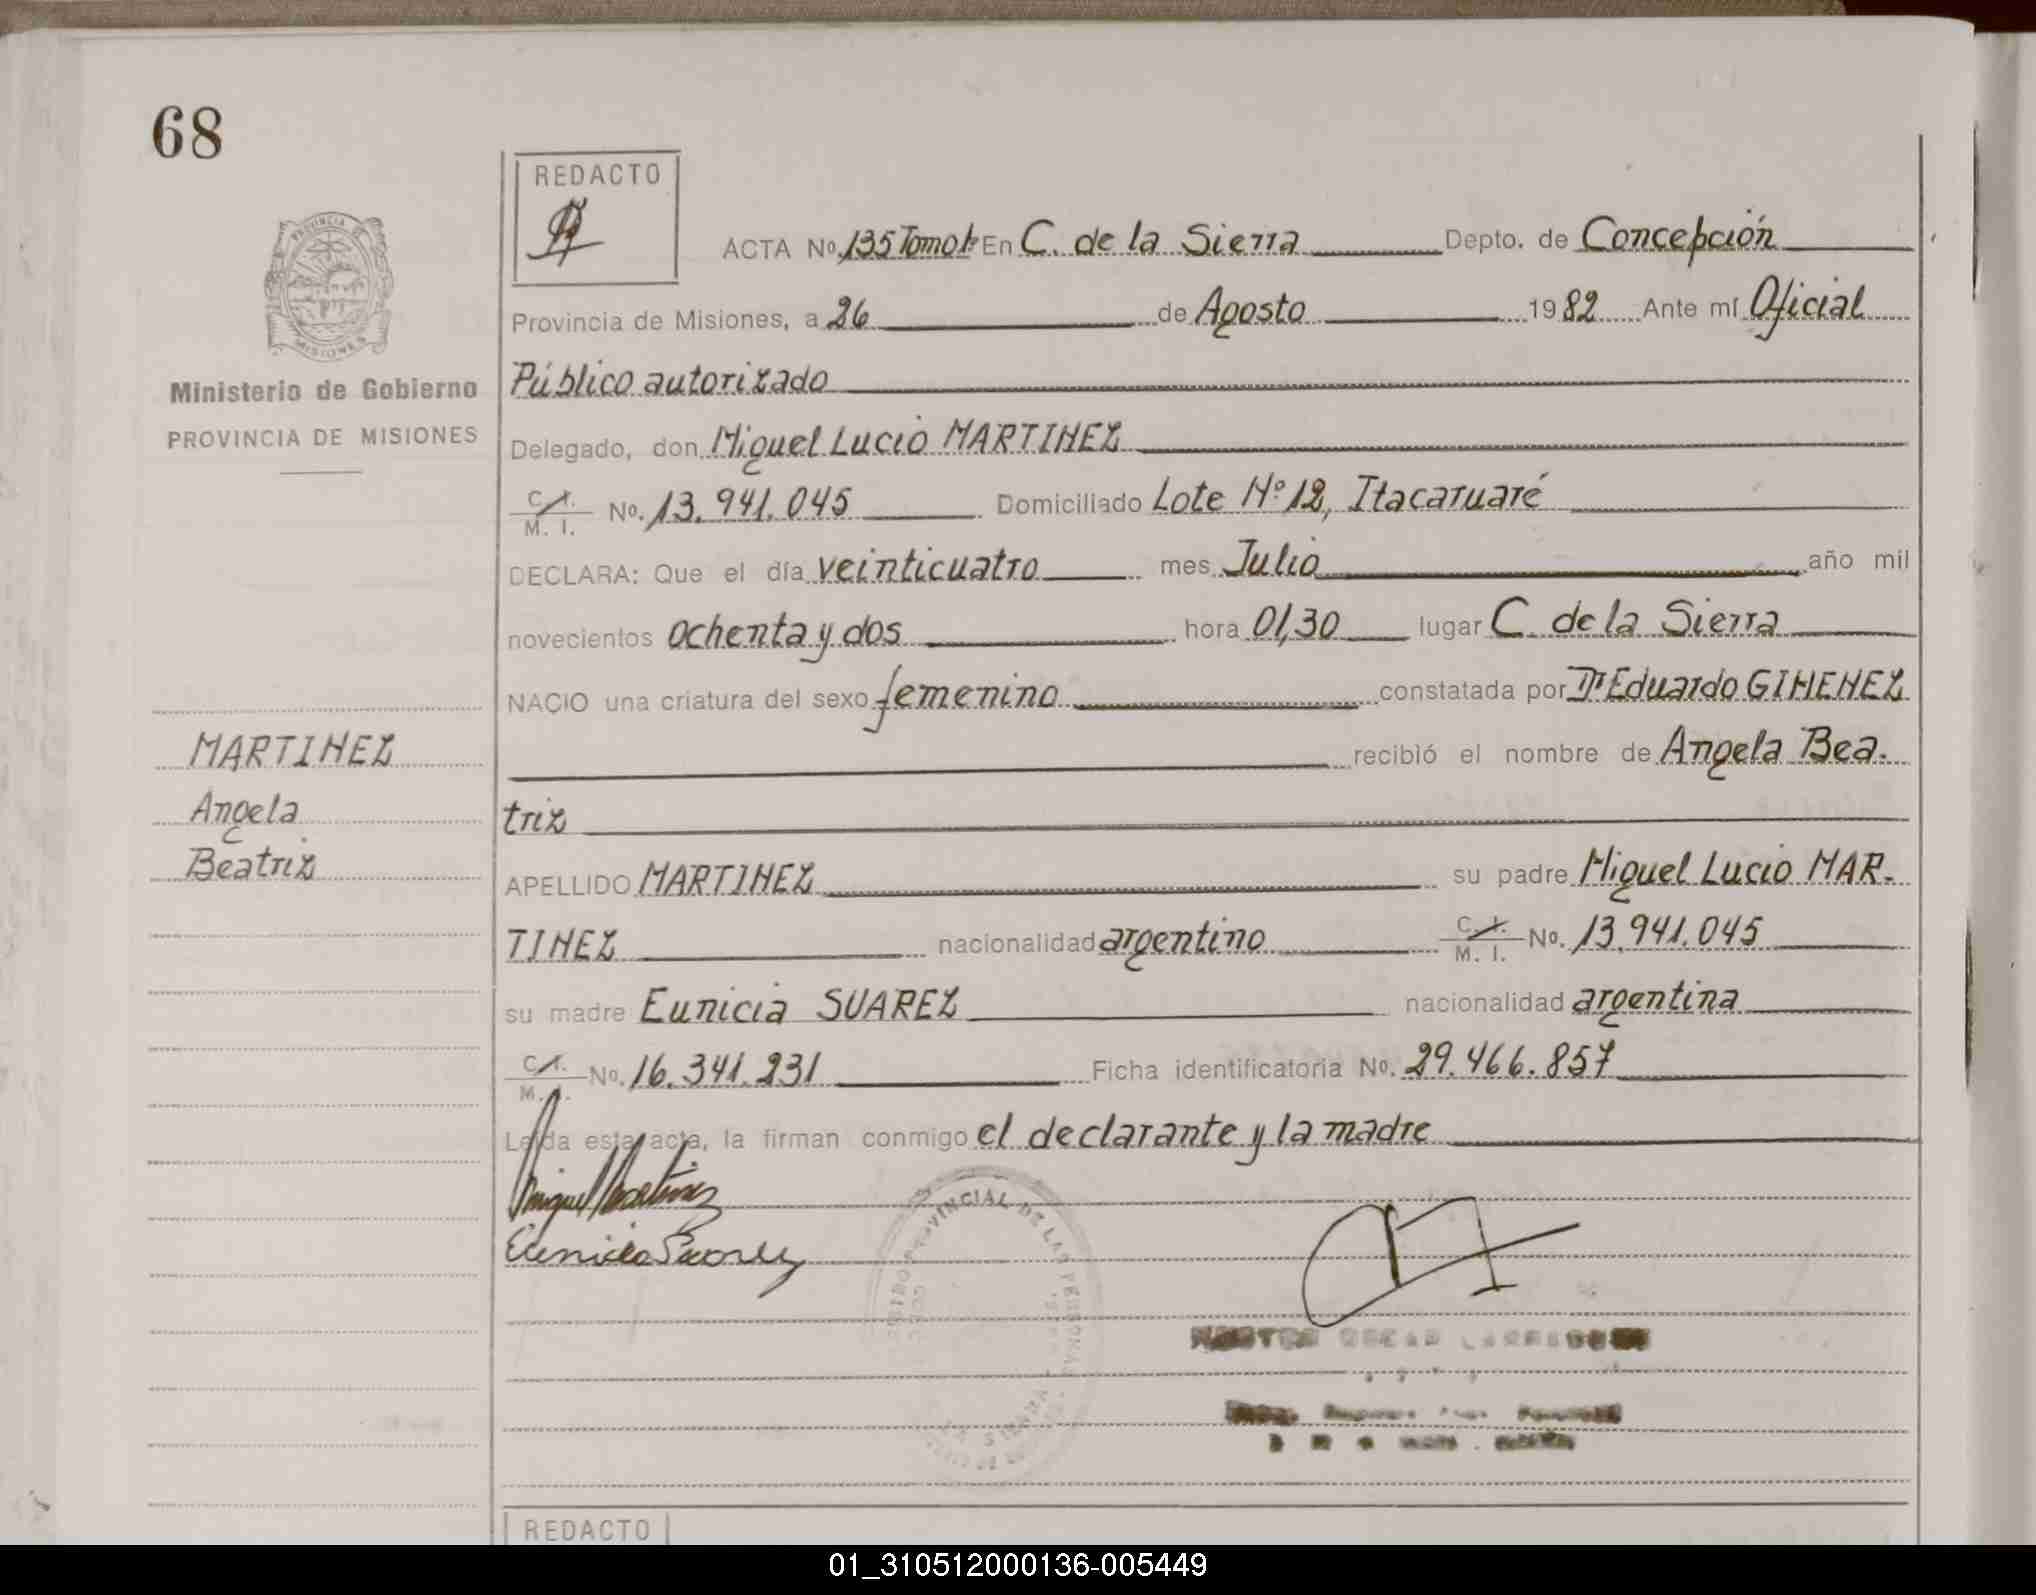 68
REDACTO
PROVINCIA DE
MISIONES
Ministerio de Gobierno
PROVINCIA DE MISIONES
ACTA No. 135 Tomo 1º En C. de la Sierra Depto. de Concepción
Provincia de Misiones, a 26 de Agosto 1982 Ante mí Oficial
Público autorizado
Delegado, don Miguel Lucio MARTINEZ
C. I. / M. I. No. 13.941.045 Domiciliado Lote Nº 12, Itacaruaré
DECLARA: Que el día veinticuatro mes Julio año mil
novecientos ochenta y dos hora 01,30 lugar C. de la Sierra
NACIO una criatura del sexo femenino constatada por Dr Eduardo GIMENEZ
recibió el nombre de Angela Bea-
triz
MARTINEZ
Angela
Beatriz
APELLIDO MARTINEZ su padre Miguel Lucio MAR-
TINEZ nacionalidad argentino C. I. / M. I. No. 13.941.045
su madre Eunicia SUAREZ nacionalidad argentina
C. I. / M. I. No. 16.341.231 Ficha identificatoria No. 29.466.857
Leída esta acta, la firman conmigo el declarante y la madre
Miguel Martinez
Eunicia Suarez
PROVINCIAL DE LAS PERSONAS
REDACTO
01_310512000136-005449